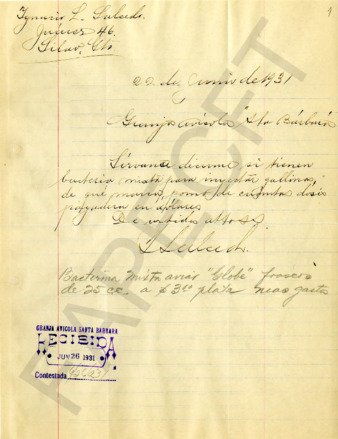 Ygnacio L. Salcedo.
Juárez 46.
Silao, Gto
1
22 de Junio de 1931
Granja Avicola "Sta Bárbara
Sírvanse decirme, si tienen
bacterina mixta para inyectar gallinas,
de que marca, pomo de cuantas dosis
y en dólares
De ustedes atto SS.
L Salcedo.
Bacterina Mixta aviar "Globe" frascos
de 25 cc. a $3.00 plata mas gastos
GRANJA AVICOLA SANTA BARBARA
RECIBIDA
JUN 26 1931
Contestada
FAPECFT